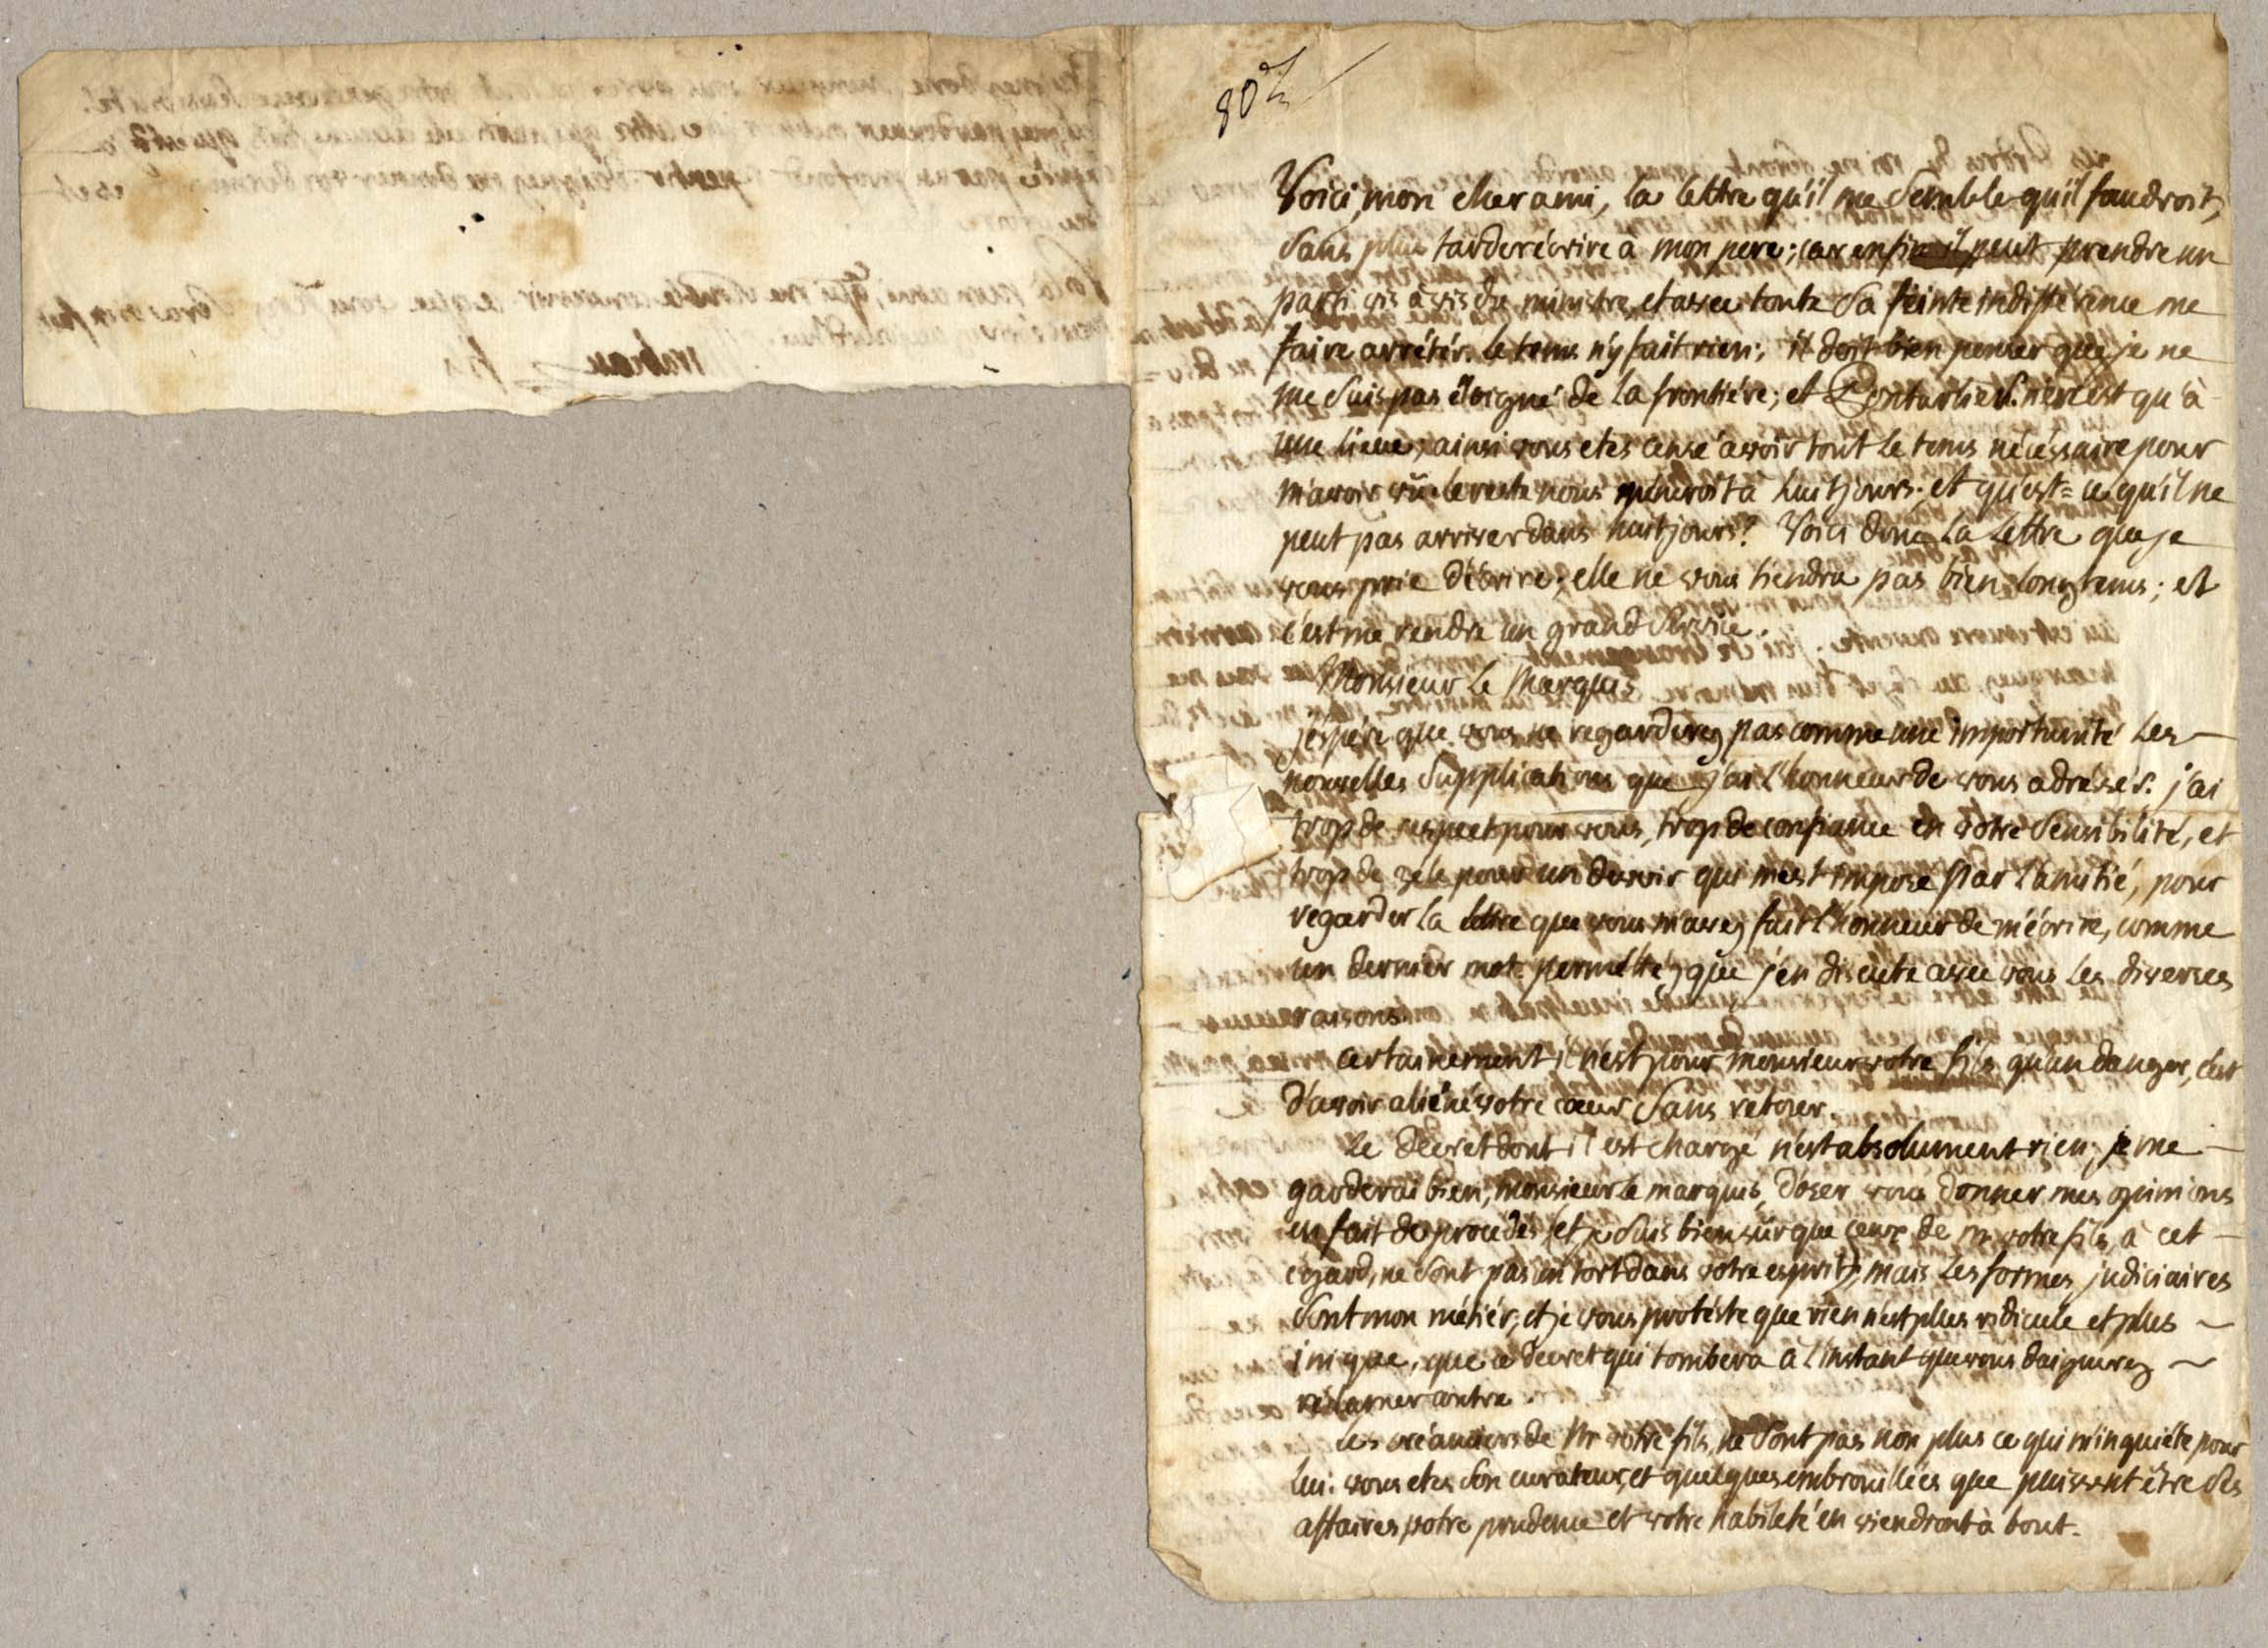 Voici, mon cher ami, la lettre qu'il me semble qu'il faudroit,
sans plus tarder écrire à mon pere; car enfin il peut prendre un
parti vis à vis du ministre, et avec toute sa feinte indifférence me
faire arrétér. le tems n'y fait rien; il doit bien penser que je ne
me suis pas éloigné de la frontiére; et Pontarlier n'en est qu'à
une lieue; ainsi vous etes censé avoir tout le tems nécéssaire pour
m'avoir vû. le reste nous méneroit à huit jours. et qu'est=ce qu'il ne
peut pas arriver dans huit jours? Voici donc la lettre que je
vous prie d'écrire; elle ne vous tiendra pas bien longtems; et
c'est me rendre un grand service.
Monsieur le Marquis
j'éspére que vous ne regarderez pas comme une importunité les
nouvelles supplications que j'ai l'honneur de vous adréssér. j'ai
trop de respect pour vous, trop de confiance en votre sensibilité, et
trop de zele pour un devoir qui m'est imposé par l'amitié, pour
regarder la lettre que vous m'avez fait l'honneur de m'écrire, comme
un dernier mot. permettéz que j'en discute avec vous les diverses
raisons.
certainement il n'est pour monsieur votre fils qu'un danger, c'est
d'avoir aliéné votre cœur sans retour.
le decret dont il est chargé n'est absolument rien; je me
garderai bien, monsieur le marquis, d'oser vous donner mes opinions
en fait de procédés (et je suis bien sûr que ceux de mr votre fils, à cet
égard, ne sont pas un tort dans votre esprit); mais les formes judiciaires
sont mon métiér, et je vous protéste que rien n'est plus ridicule et plus
inique, que ce decret qui tombera à l'instant que vous daignerez
réclamer contre.
les créanciers de Mr votre fils, ne sont pas non plus ce qui m'inquiéte pour
lui. vous etes son curateur, et quelques embrouillées que puissent être ses
affaires votre prudence et votre habileté en viendront à bout.